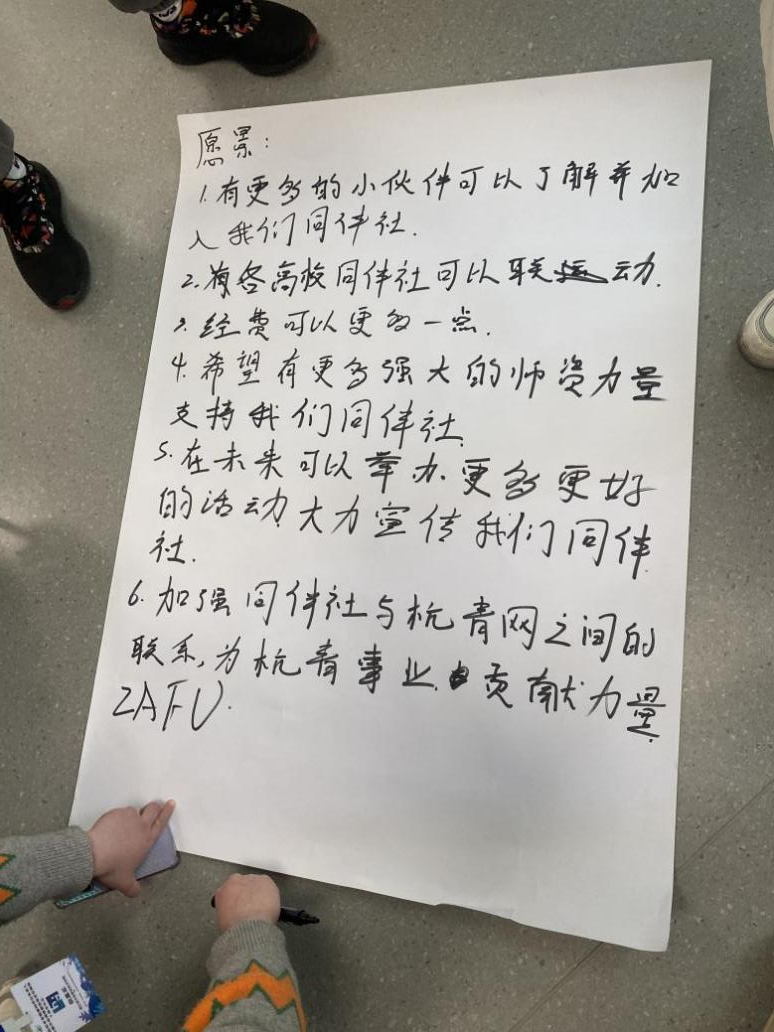 愿景：
1.有更多的小伙伴可以了解并加
入我们同伴社.
2.有各高校同伴社可以联动.
3.经费可以更多一点.
4.希望有更多强大的师资力量
支持我们同伴社.
5.在未来可以举办更多更好
的活动大力宣传我们同伴
社.
6.加强同伴社与杭青网之间的
联系,为杭青事业贡献力量.
ZAFU.